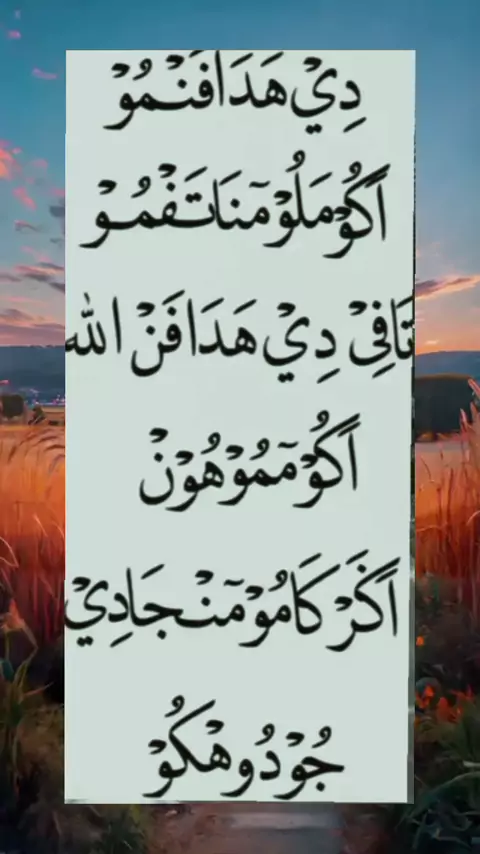 دِيْ هَدَافَنْمُوْ
اَكُوْ مَلُوْ مٓنَاتَفْمُوْ
تَافِيْ دِيْ هَدَافَنْ الله
اَكُوْ مٓمُوْهُوْنْ
اَڬَرْ كَامُوْ مٓنْجَادِيْ
جُوْدُوهْكُوْ